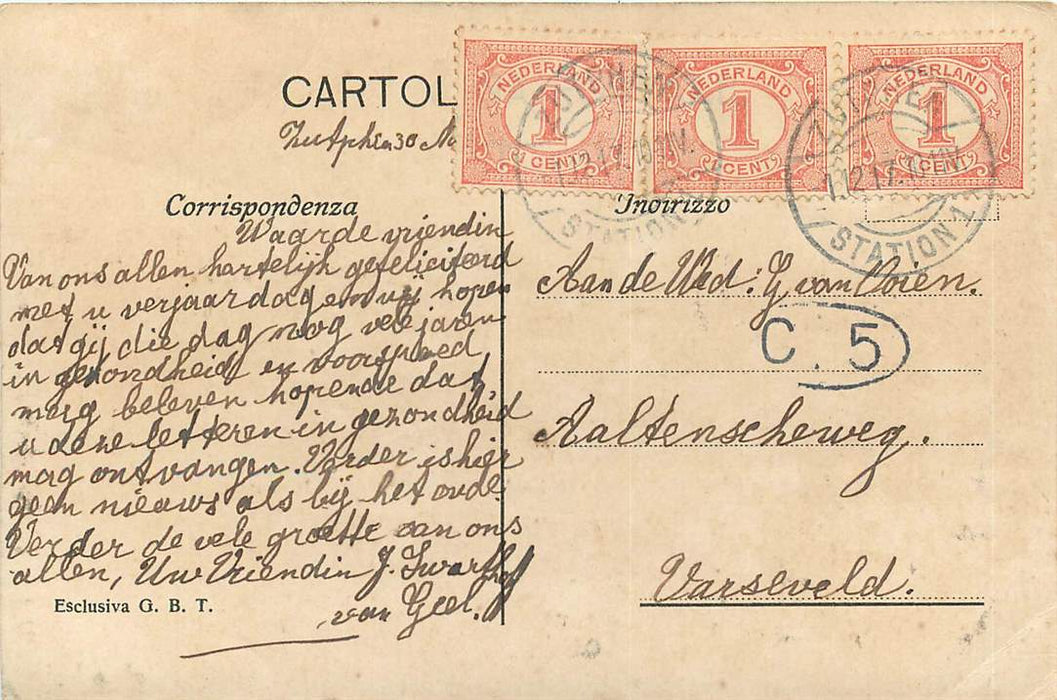 CARTOL
Zutphen 30 No
NEDERLAND
1
1 CENT
NEDERLAND
1
CENT
NEDERLAND
1
CENT
STATION
1.12.17.
STATION 1
Corrispondenza
Indirizzo
Waarde vriendin
Van ons allen hartelijk gefeliciteerd
met u verjaardag en wij hopen
dat gij die dag nog vele jaren
in gezondheid en voorspoed
mag beleven hopende dat
u deze letteren in gezondheid
mag ontvangen. Verder is hier
geen nieuws als bij het oude
Verder de vele groette van ons
allen, Uw Vriendin J.
van Geel.
Esclusiva G. B. T.
Aan de Wed: G. van
C. 5
Aaltenscheweg.
Varseveld.